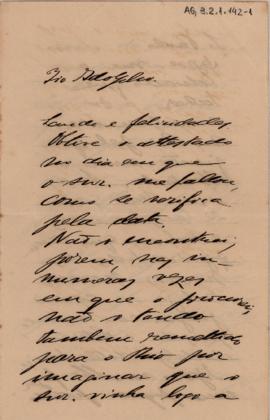 AG, 3.2.1.142-1
Tio Adolpho.
Saude e felicidades.
Obtive o attestado
no dia em que
o snr. me fallou,
como se verifica
pela data.
Não o encontrei,
porém, nas in-
numeras vezes
em que o procurei,
não o tendo
tambem remettido
para o Rio por
imaginar que o
snr. vinha logo a